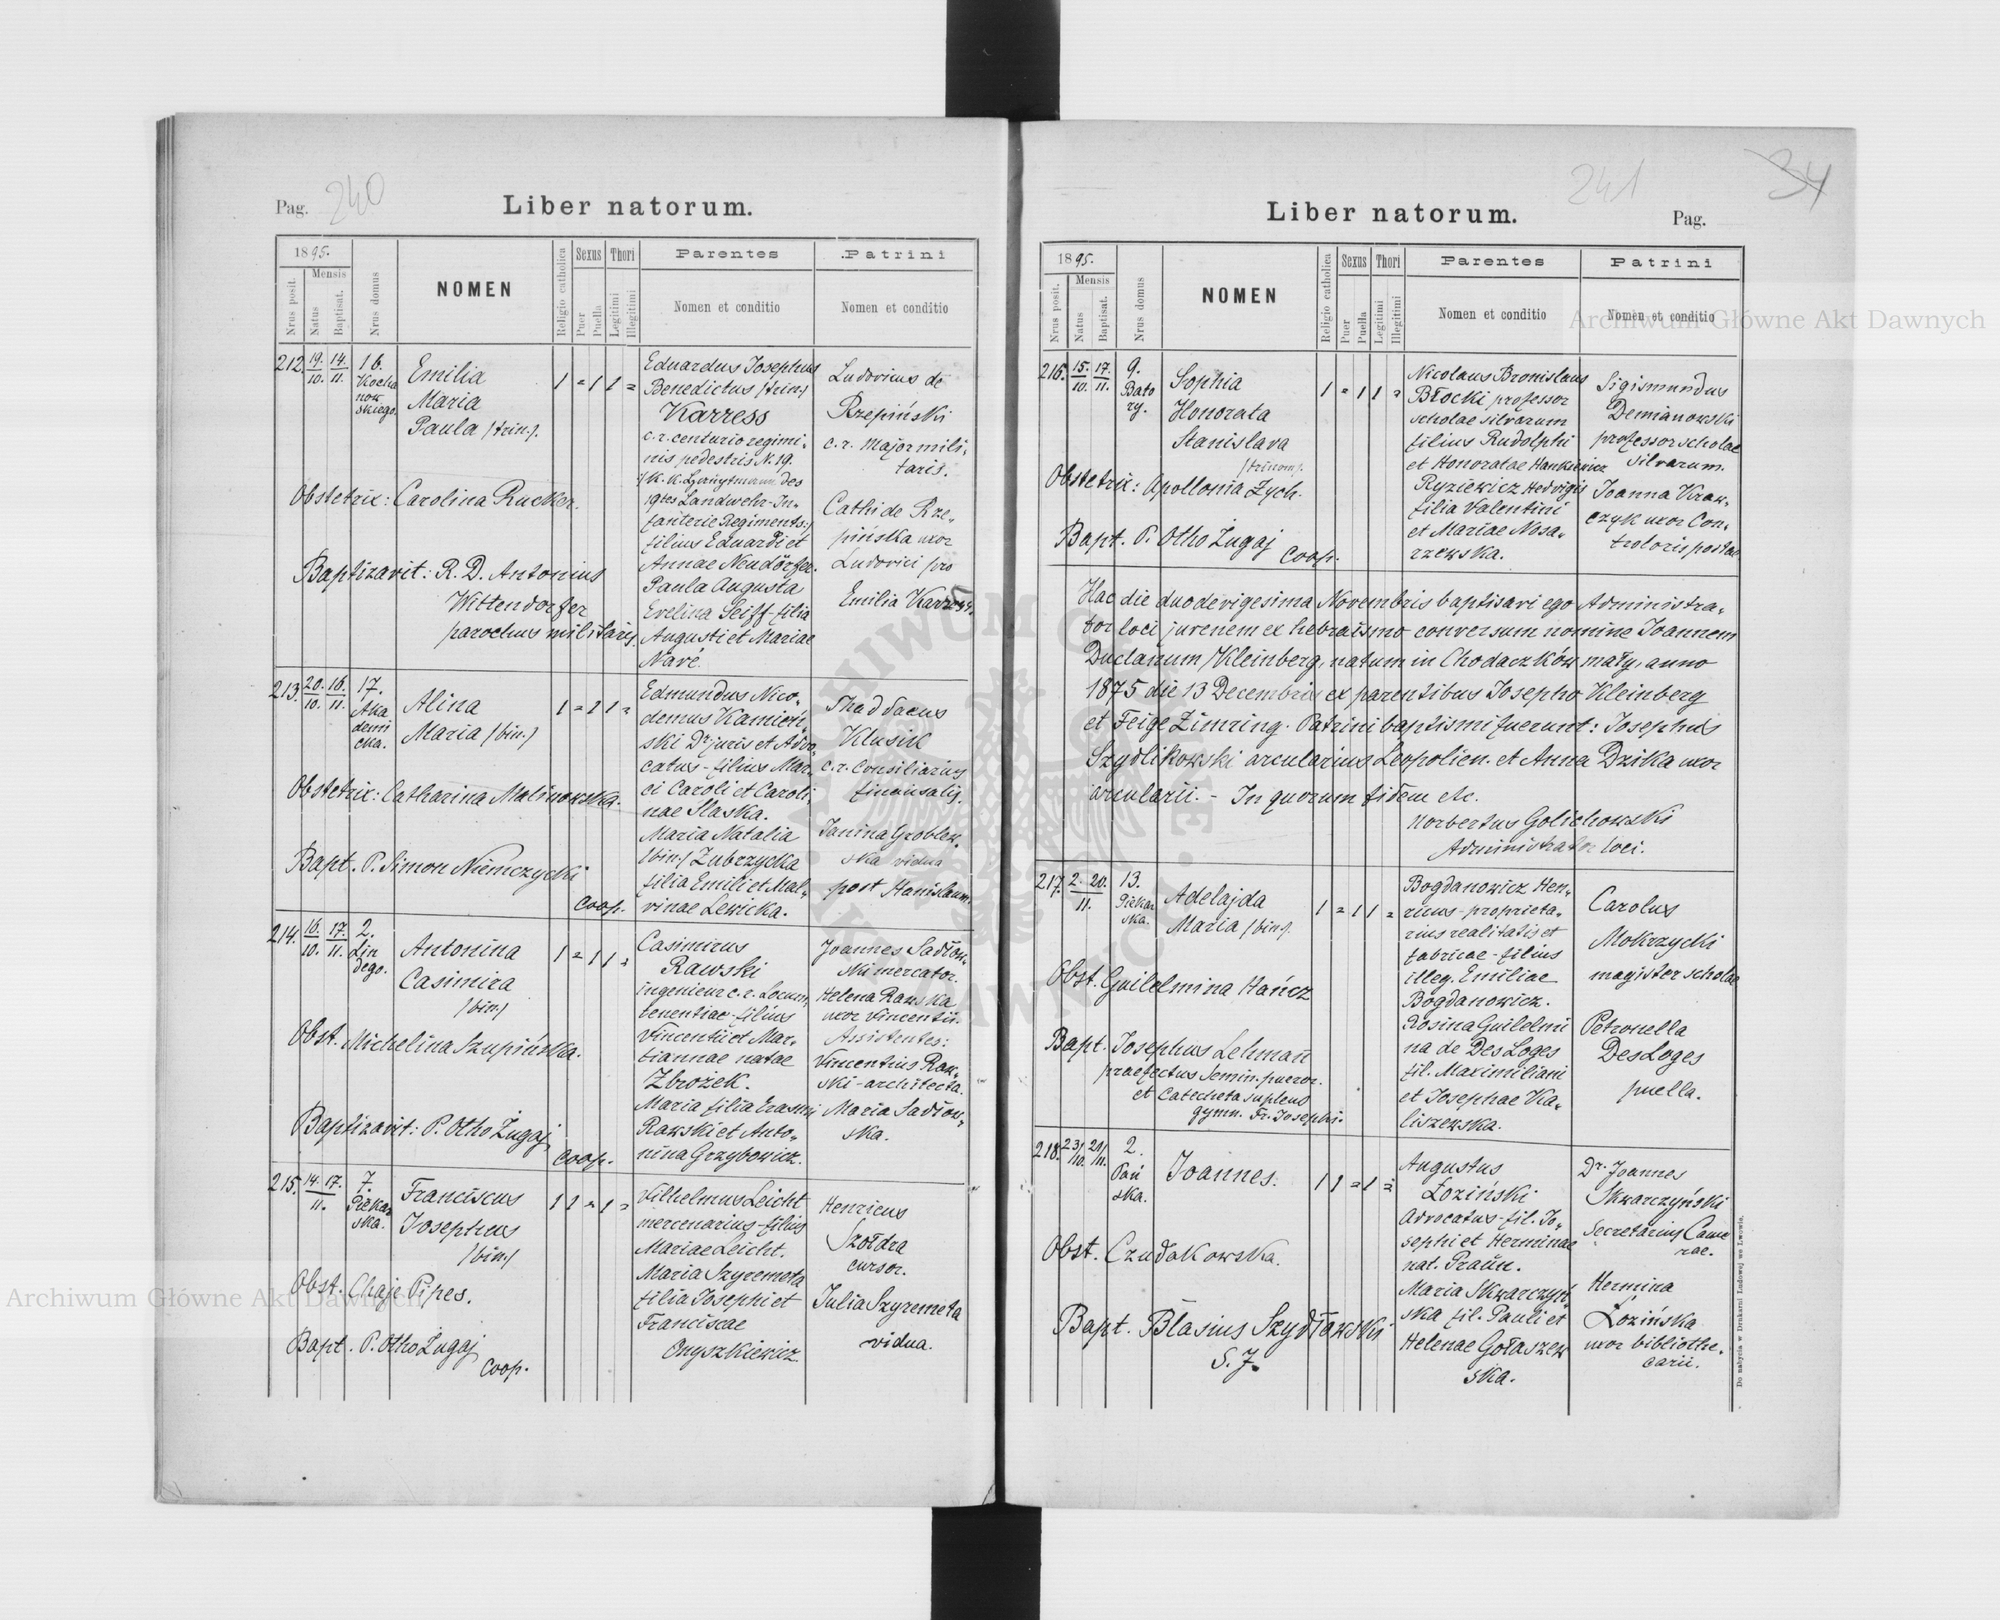 Pag. 240
Liber natorum.
1895.
Mensis
Nrus posit.
Natus
Baptisat.
Nrus domus
NOMEN
Religio catholica
Sexus
Puer
Puella
Thori
Legitimi
Illegitimi
Parentes
Nomen et conditio
Patrini
Nomen et conditio
212. 19/10. 14/11. 16.
Kocha
now
skiego.
Emilia
Maria
Paula /trin./.
1 = 1 1 =
Eduardus Josephus
Benedictus /trin./
Karress
c. r. centurio regimi-
nis pedestris N. 19
19tes Landwehr-In-
fanterie Regiments:/
filius Eduardi et
Annae Neudörfer.
Paula Augusta
Evelina Seiff-filia
Augusti et Mariae
Navé.
Ludovicus de
Rzepiński
c. r. Major mili-
taris.
Cath: de Rze-
pińska uxor
Ludovici pro
Emilia Karress.
Obstetrix: Carolina Rucker.
Baptizavit: R. D. Antonius
Wittendorfer
parochus militaris.
213. 20./10. 16./11. 17.
Aka
demi
cka.
Alina
Maria /bin./
1 = 1 1 =
Edmundus Nico-
demus Kamień-
ski Dr. juris et Advo-
catus - filius Mar-
ci Caroli et Caroli-
nae Slaska.
Maria Natalia
/bin./ Zubrzycka
filia Emili et Mal-
vinae Lewicka.
Thaddaeus
Klusik
c. r. Consiliarius
financialis.
Janina Groblew-
ska vidua
post Stanislaum.
Obstetrix: Catharina Malinowska.
Bapt. P. Simon Niemczycki
coop.
214. 16./10. 17./11. 2.
Lin
dego.
Antonina
Casimira
/bin./
1 = 1 1 =
Casimirus
Rawski
ingenieur c. r. Locum-
tenentiae - filius
Vincentii et Mar-
tiannae natae
Zbrożek.
Maria filia Erasmi
Rawski et Anto-
nina Grzybowicz.
Joannes Sadłow-
ski mercator.
Helena Rawska
uxor Vincentii.
Assistentes:
Vincentius Raw-
ski - architecta.
Maria Sadłow-
ska.
Obst. Michelina Szupińska.
Baptizavit: P. Otho Żugaj,
coop.
215. 14. 17./11. 7.
Piekar
ska.
Franciscus
Josephus
/bin/
1 1 = 1 =
Vilhelmus Leicht
mercenarius - filius
Mariae Leicht.
Maria Szyremeta
filia Josephi et
Franciscae
Onyszkiewicz.
Henricus
Szołdra
cursor.
Julia Szyremeta
vidua.
Obst. Chaje Pipes.
Bapt. P. Otho Żugaj
coop.
241 34
Liber natorum.
Pag.
1895.
Mensis
Nrus posit.
Natus
Baptisat.
Nrus domus
NOMEN
Religio catholica
Sexus
Puer
Puella
Thori
Legitimi
Illegitimi
Parentes
Nomen et conditio
Patrini
Nomen et conditio
216. 15./10. 17./11. 9.
Bato
ry.
Sophia
Honorata
Stanislava
/trinom/.
1 = 1 1 =
Nicolaus Bronislaus
Błocki professor
scholae silvarum
filius Rudolphi
et Honoratae Hankiewicz
Ryziewicz Hedvigis
filia Valentini
et Mariae Nosa-
rzewska.
Sigismundus
Demianowski
professor scholae
silvarum.
Joanna Kraw-
czyk uxor Con-
troloris postae
Obstetrix: Apollonia Zych.
Bapt. P. Otho Żugaj
coop.
Hac die duodevigesima Novembris baptisavi ego Administra-
tor loci juvenem ex hebraismo conversum nomine Joannem
Duclanum /Kleinberg, natum in Chodaczków mały, anno
1875 die 13 Decembris ex parentibus Josepho Kleinberg
et Feige Zimring. Patrini baptismi fuerunt: Josephus
Szydlikowski arcularius Leopolien. et Anna Dzika uxor
arcularii. - In quorum fidem etc.
Norbertus Golichowski
Administrator loci.
217. 2. 20./11. 13.
Piekar
ska.
Adelajda
Maria /bin/.
1 = 1 1 =
Bogdanowicz Hen-
ricus - proprieta-
rius realitatis et
fabricae - filius
illeg. Emiliae
Bogdanowicz.
Rosina Guilelmi
na de Des Loges
fil. Maximiliani
et Josephae Ka-
liszewska.
Carolus
Mokrzycki
magister scholae
Petronella
DesLoges
puella.
Obst. Guilelmina Hańcz
Bapt. Josephus Lehmañ
praefectus Semin. pueror.
et Catecheta supleus
gymn. Fr. Josephi.
218. 23/10. 20/11. 2.
Pań
ska.
Joannes.
1 1 = 1 =
Augustus
Łoziński
Advocatus - fil. Jo-
sephi et Herminae
nat. Praün.
Maria Skwarczyń-
ska fil. Pauli et
Helenae Gołaszew
ska.
Dr. Joannes
Skwarczyński
Secretarius Came
rae.
Hermina
Łozińska
uxor bibliothe-
carii.
Obst. Czudakowska.
Bapt. Blasius Szydłowski
S. J.
Do nabycia w Drukarni Ludowej we Lwowie.
Archiwum Główne Akt Dawnych
Archiwum Główne Akt Dawnych